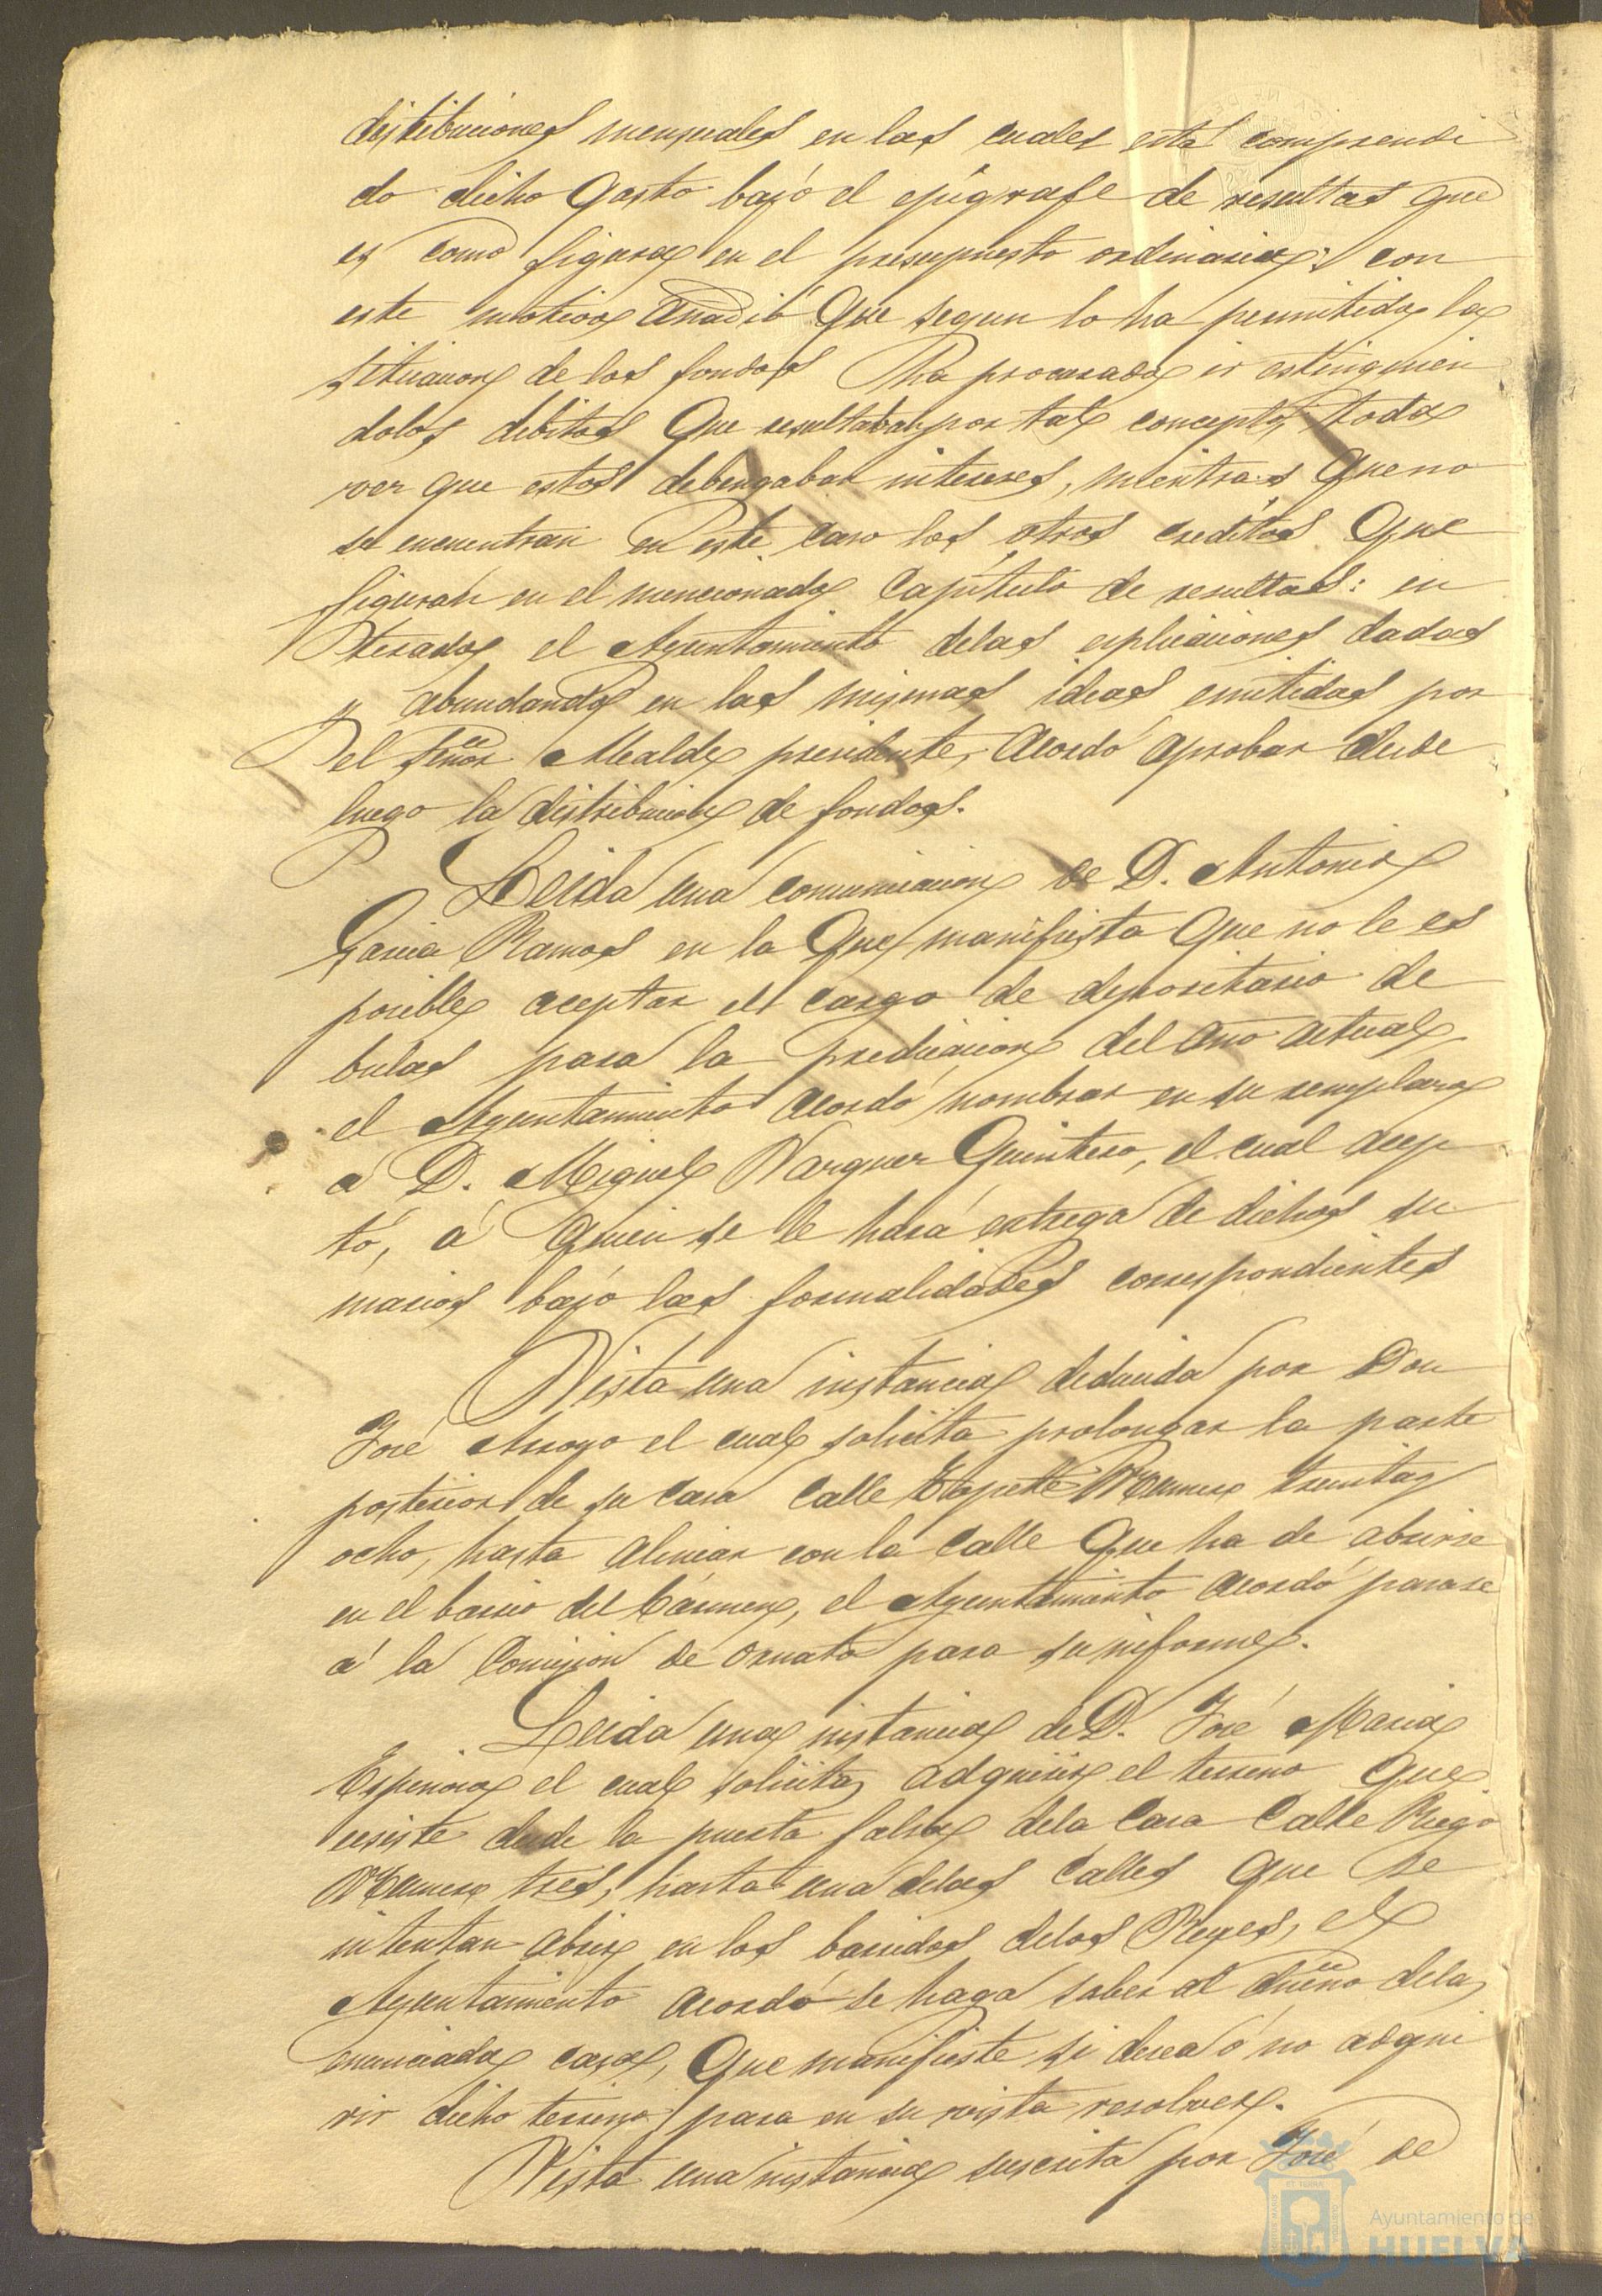 distribuciones mensuales en las cuales está comprendi
do dicho Gasto bajó el epigrafe de resultas que
es como figura en el presupuesto ordinario; con
este motivo añadió Que segun lo ha permitido la
situacion de los fondos ha procurado ir estinguien
dolos debitos Que resultaban por tal concepto, toda
vez que estos debengaban intereses, mientras Que no
se encuentran en este caso los otros creditos Que
figuran en el mencionado Capítulo de resultas: en
terado el Ayuntamiento delas esplicaciones dadas
y abundando en las mismas ideas emitidas por
el Señor Alcalde presidente, acordó aprobar desde
luego la distribucion de fondos.
Leida una comunicacion de D. Antonio
Garcia Ramos en la Que manifiesta Que no le es
posible aceptar el cargo de depositario de
bulas para la predicacion del año actual,
el Ayuntamiento acordó nombrar en su remplazo
á D. Miguel Vazquez Quintero, el cual acep
tó, á quien se le hará entrega de dichos su
marios bajó las formalidades correspondientes
Vista una instancia deducida por Don
José Arroyo el cual solicita prolongar la parte
posterior de su casa calle Numero treinta y
ocho, hasta alinear con la calle Que ha de abrirse
en el barrio del Cármen, el Ayuntamiento acordó pasase
á la Comision de ornato para su informe.
Leida una instancia de D. José Maria
Espinosa el cual solicita adquirir el terreno Que
ecsiste desde la puerta falsa dela Casa Calle Riego
Numero tres, hasta una delas Calles Que se
intentan abrir en los barridos delos Reyes, el
Ayuntamiento acordó se haga saber al dueño dela
enunciada casa, Que manifieste si desea ó no adqui
rir dicho terreno para en su vista resolver.
Vista una instancia suscrita por José de
Ayuntamiento de
HUELVA